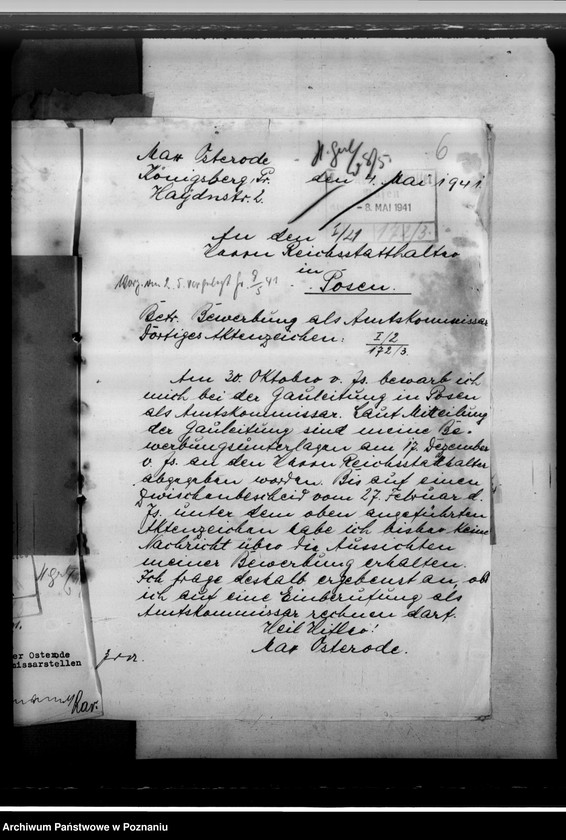 6
Max Osterode
Königsberg, Pr.
Haydnstr. 2.
den 4. Mai 1941.
- 8. MAI 1941
I/21
172/3.
An den
Herrn Reichsstatthalter
in
Posen.
Betr. Bewerbung als Amtskommissar
Dortiges Aktenzeichen: I/2
172/3.
Am 30. Oktober v. Js. bewarb ich
mich bei der Gauleitung in Posen
als Amtskommissar. Laut Mitteilung
der Gauleitung sind meine Be-
werbungsunterlagen am 17. Dezember
v. Js. an den Herrn Reichsstatthalter
abgegeben worden. Bis auf einen
Zwischenbescheid vom 27. Februar d.
Js. unter dem oben angeführten
Aktenzeichen habe ich bisher keine
Nachricht über die Aussichten
meiner Bewerbung erhalten.
Ich frage deshalb ergebenst an, ob
ich auf eine Einberufung als
Amtskommissar rechnen darf.
Heil Hitler!
Max Osterode.
er Osterode
missarstellen
Archiwum Państwowe w Poznaniu